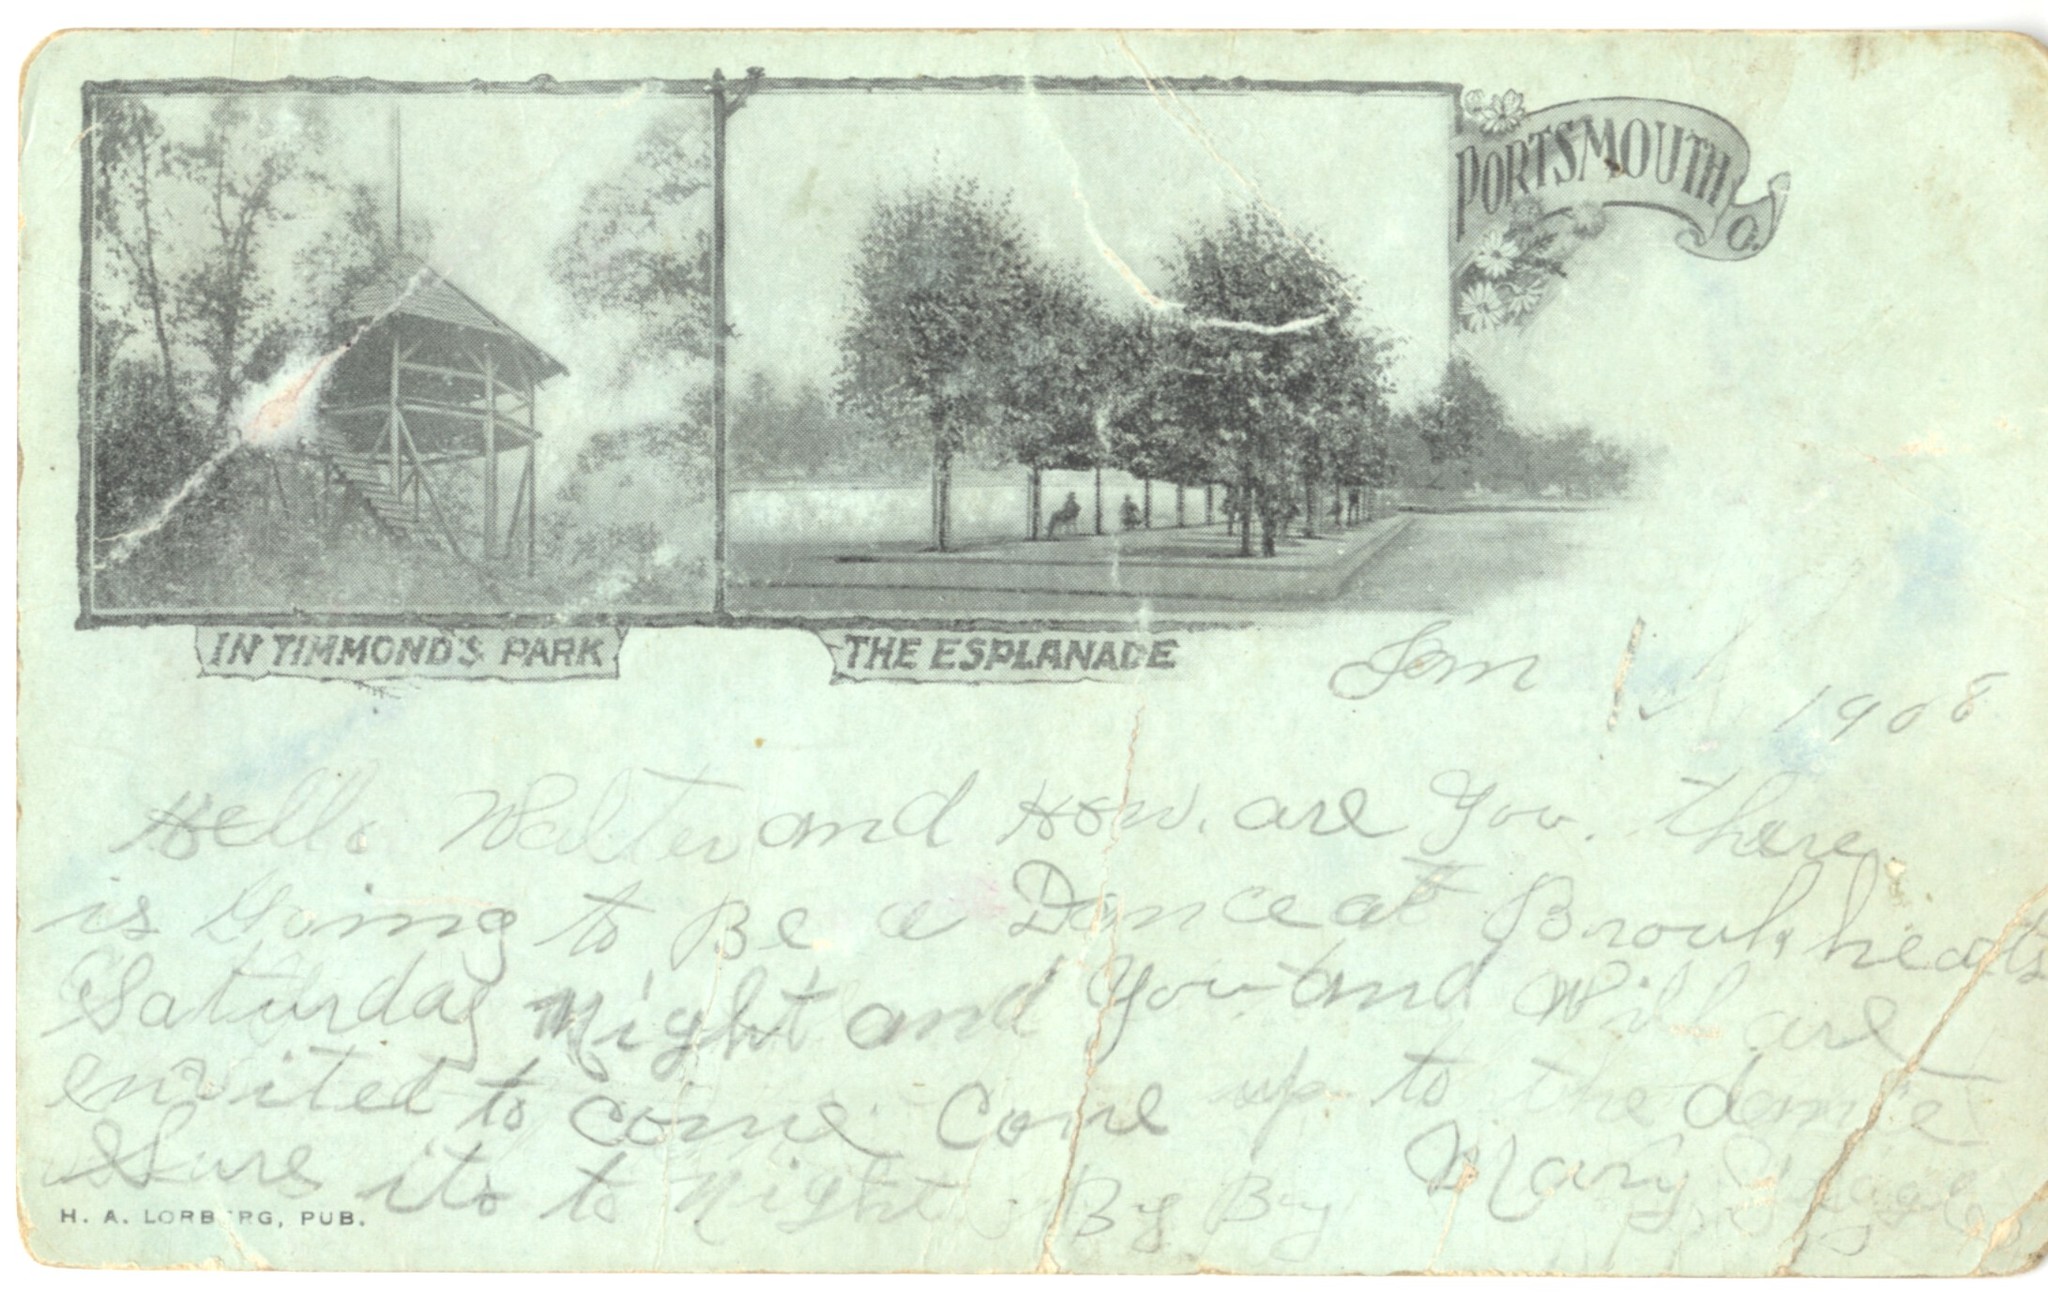 PORTSMOUTH O.
IN TIMMOND'S PARK
THE ESPLANADE
Jan 1908
Hello Walter and How are You. there
is Going to Be a Dance at
Saturday Night and You and Will are
envited to come. Come up to the dance
Sure its to Night. By By Mary
H. A. LORBERG, PUB.